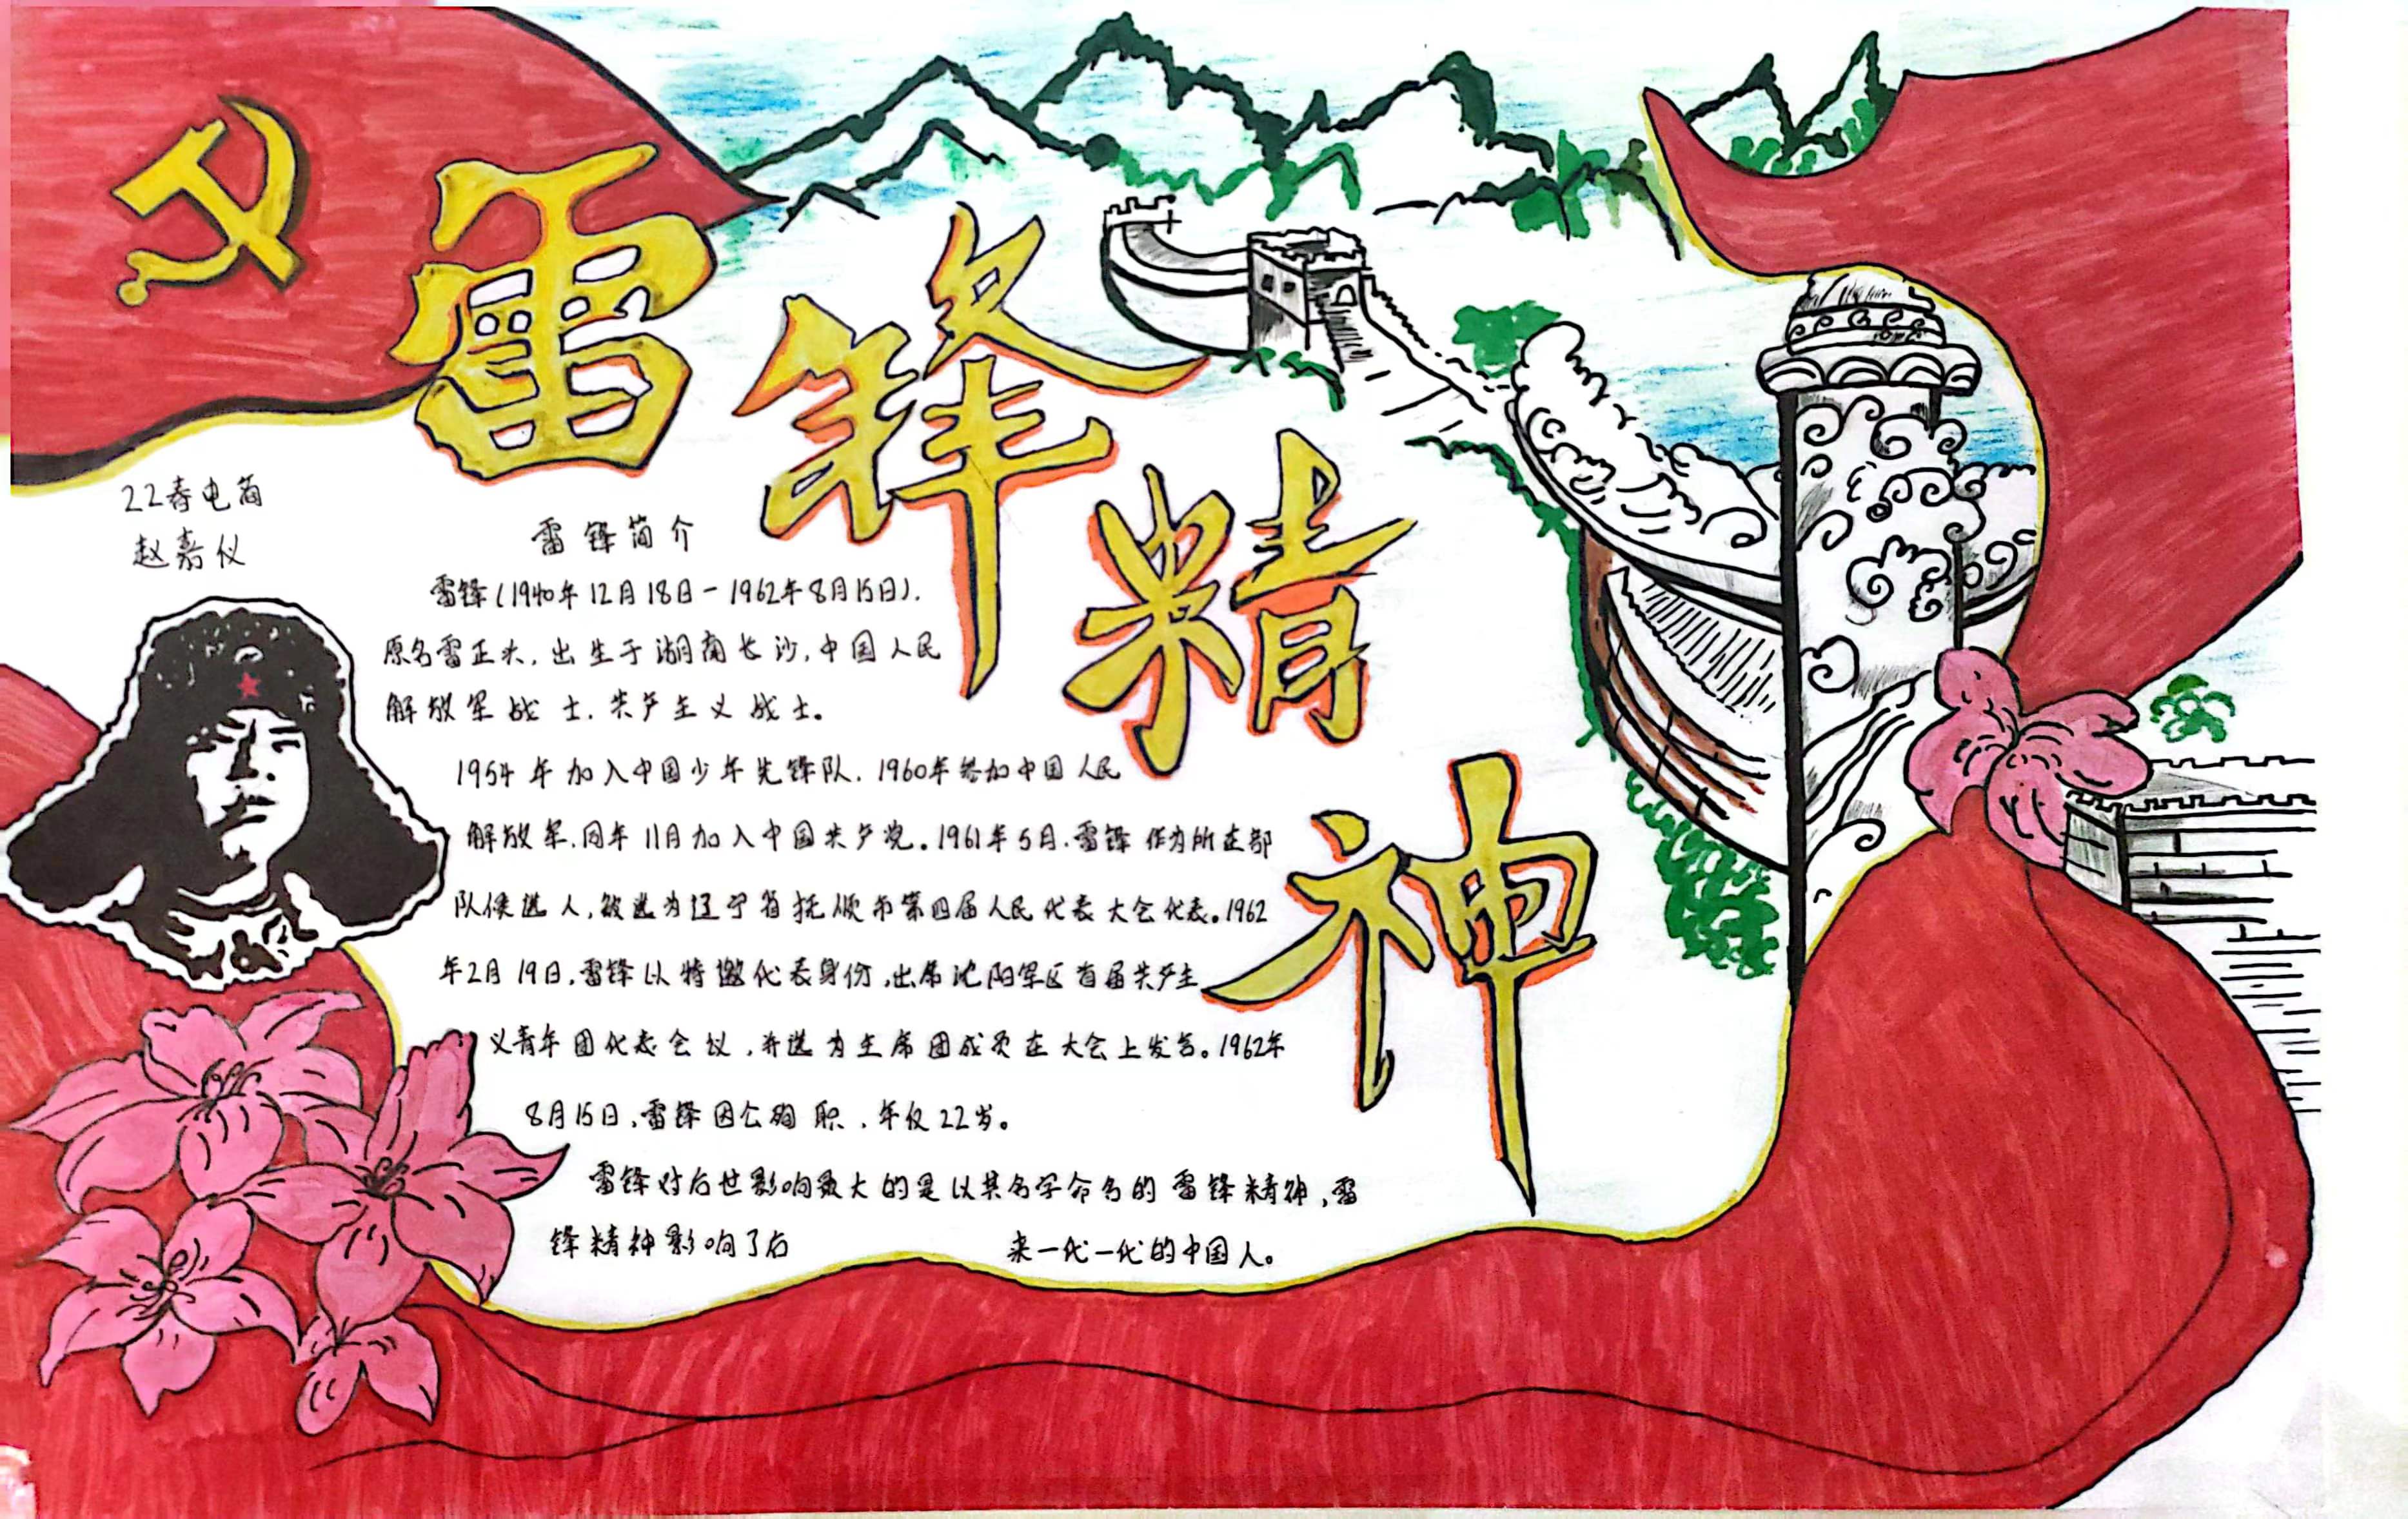 雷锋精神
22春电商
赵嘉仪
雷锋简介
雷锋(1940年12月18日-1962年8月15日),
原名雷正兴,出生于湖南长沙,中国人民
解放军战士,共产主义战士。
1954年加入中国少年先锋队,1960年参加中国人民
解放军,同年11月加入中国共产党。1961年5月,雷锋作为所在部
队候选人,被选为辽宁省抚顺市第四届人民代表大会代表。1962
年2月19日,雷锋以特邀代表身份,出席沈阳军区首届共产主
义青年团代表会议,并选为主席团成员在大会上发言。1962年
8月15日,雷锋因公殉职,年仅22岁。
雷锋对后世影响最大的是以其名字命名的雷锋精神,雷
锋精神影响了后来一代一代的中国人。